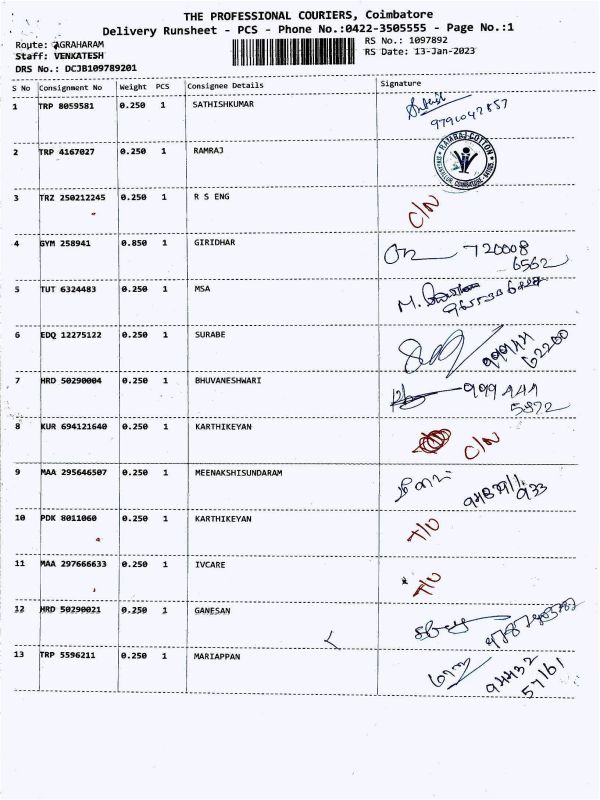 THE PROFESSIONAL COURIERS, Coimbatore
Delivery Runsheet - PCS - Phone No.:0422-3505555 - Page No.:1
Route: AGRAHARAM
RS No.: 1097892
Staff: VENKATESH
RS Date: 13-Jan-2023
DRS No.: DCJB109789201
S No Consignment No Weight PCS Consignee Details Signature
1 TRP 8059581 0.250 1 SATHISHKUMAR
9791042857
2 TRP 4167027 0.250 1 RAMRAJ RAMRAJ COTTON
3 TRZ 250212245 0.250 1 R S ENG C/N
4 GYM 258941 0.850 1 GIRIDHAR 720008
6562
5 TUT 6324483 0.250 1 MSA M.
6 EDQ 12275122 0.250 1 SURABE 99944
62200
7 HRD 50290004 0.250 1 BHUVANESHWARI 999444
5872
8 KUR 694121640 0.250 1 KARTHIKEYAN C/N
9 MAA 295646507 0.250 1 MEENAKSHISUNDARAM
933
10 PDK 8011060 0.250 1 KARTHIKEYAN T/U
11 MAA 297666633 0.250 1 IVCARE T/U
12 HRD 50290021 0.250 1 GANESAN
13 TRP 5596211 0.250 1 MARIAPPAN 94432
57161